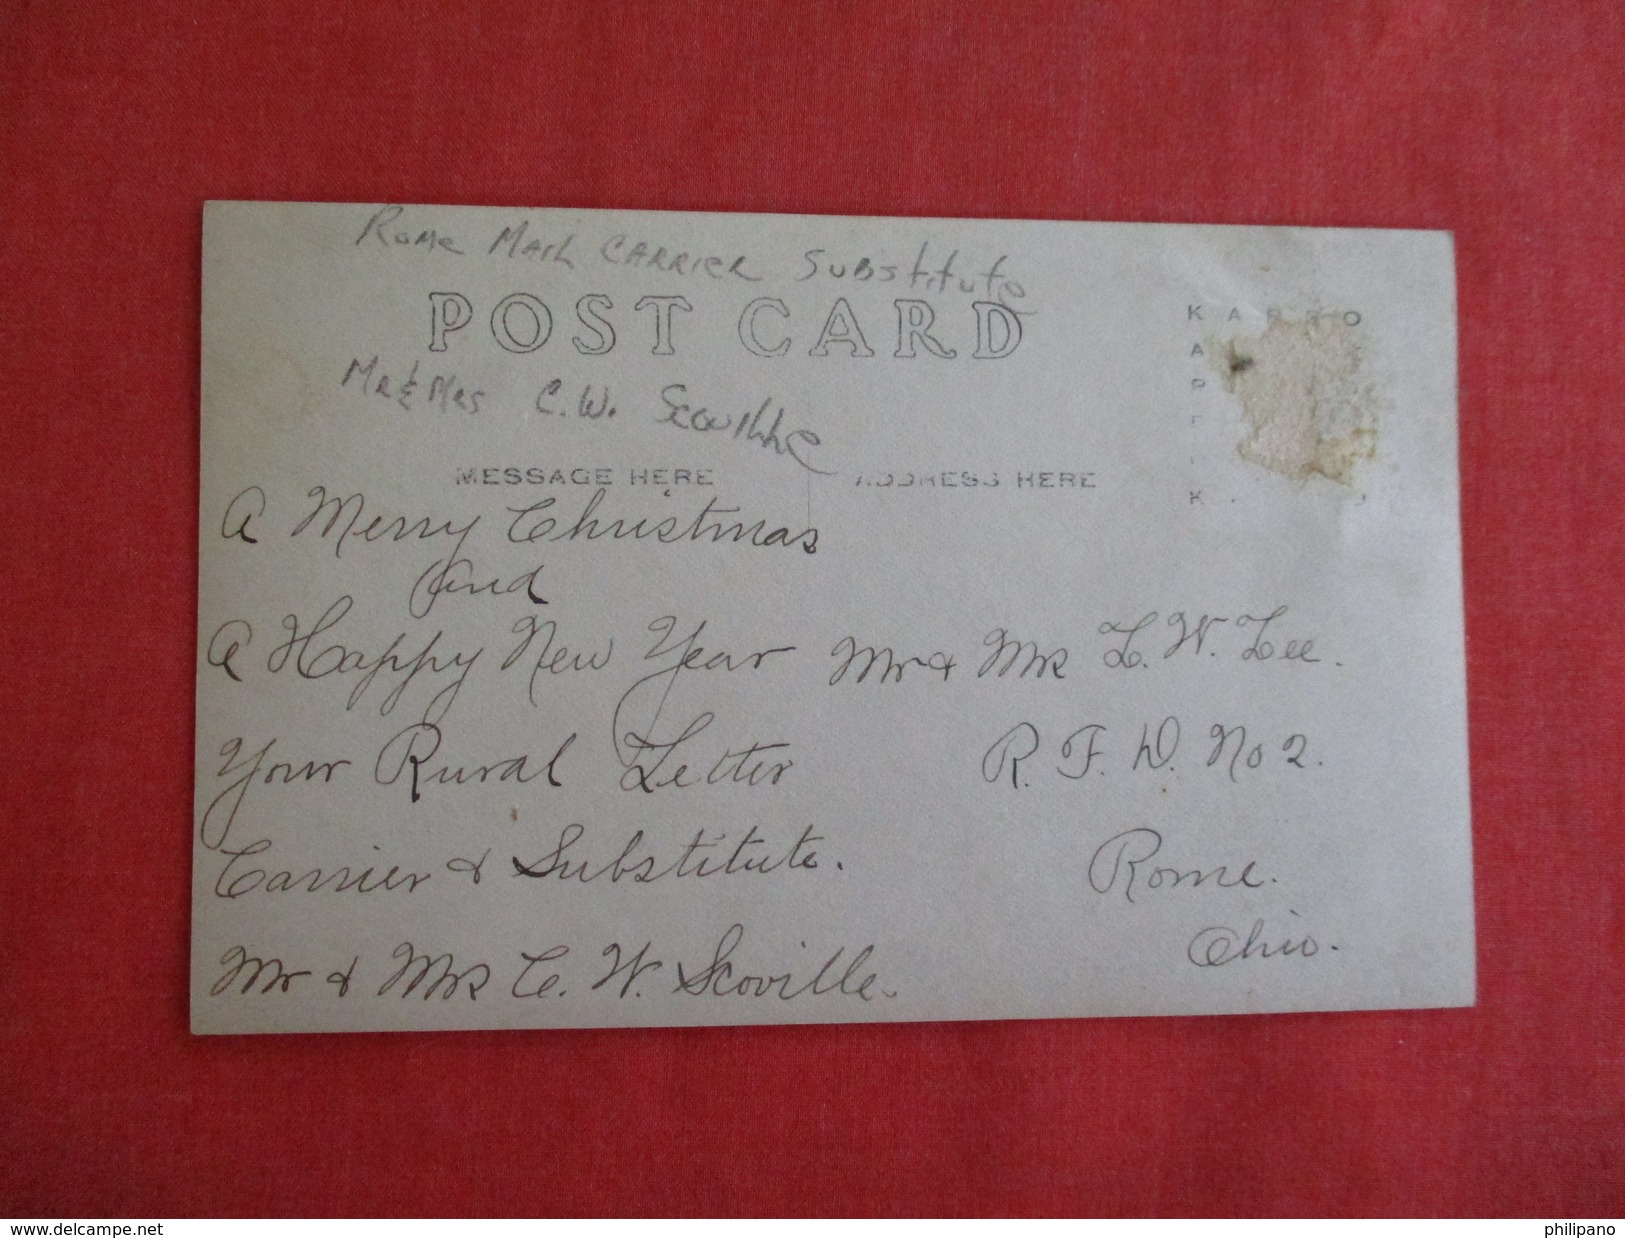 Rome Mail Carrier Substitute
POST CARD
Mr & Mrs C.W. Scoville
MESSAGE HERE
ADDRESS HERE
A Merry Christmas
and
A Happy New Year
Your Rural Letter
Carrier & Substitute.
Mr & Mrs C. W. Scoville.
Mr & Mrs L. W. Lee.
R. F. D. No 2.
Rome.
Ohio.
delcampe.net
philipano